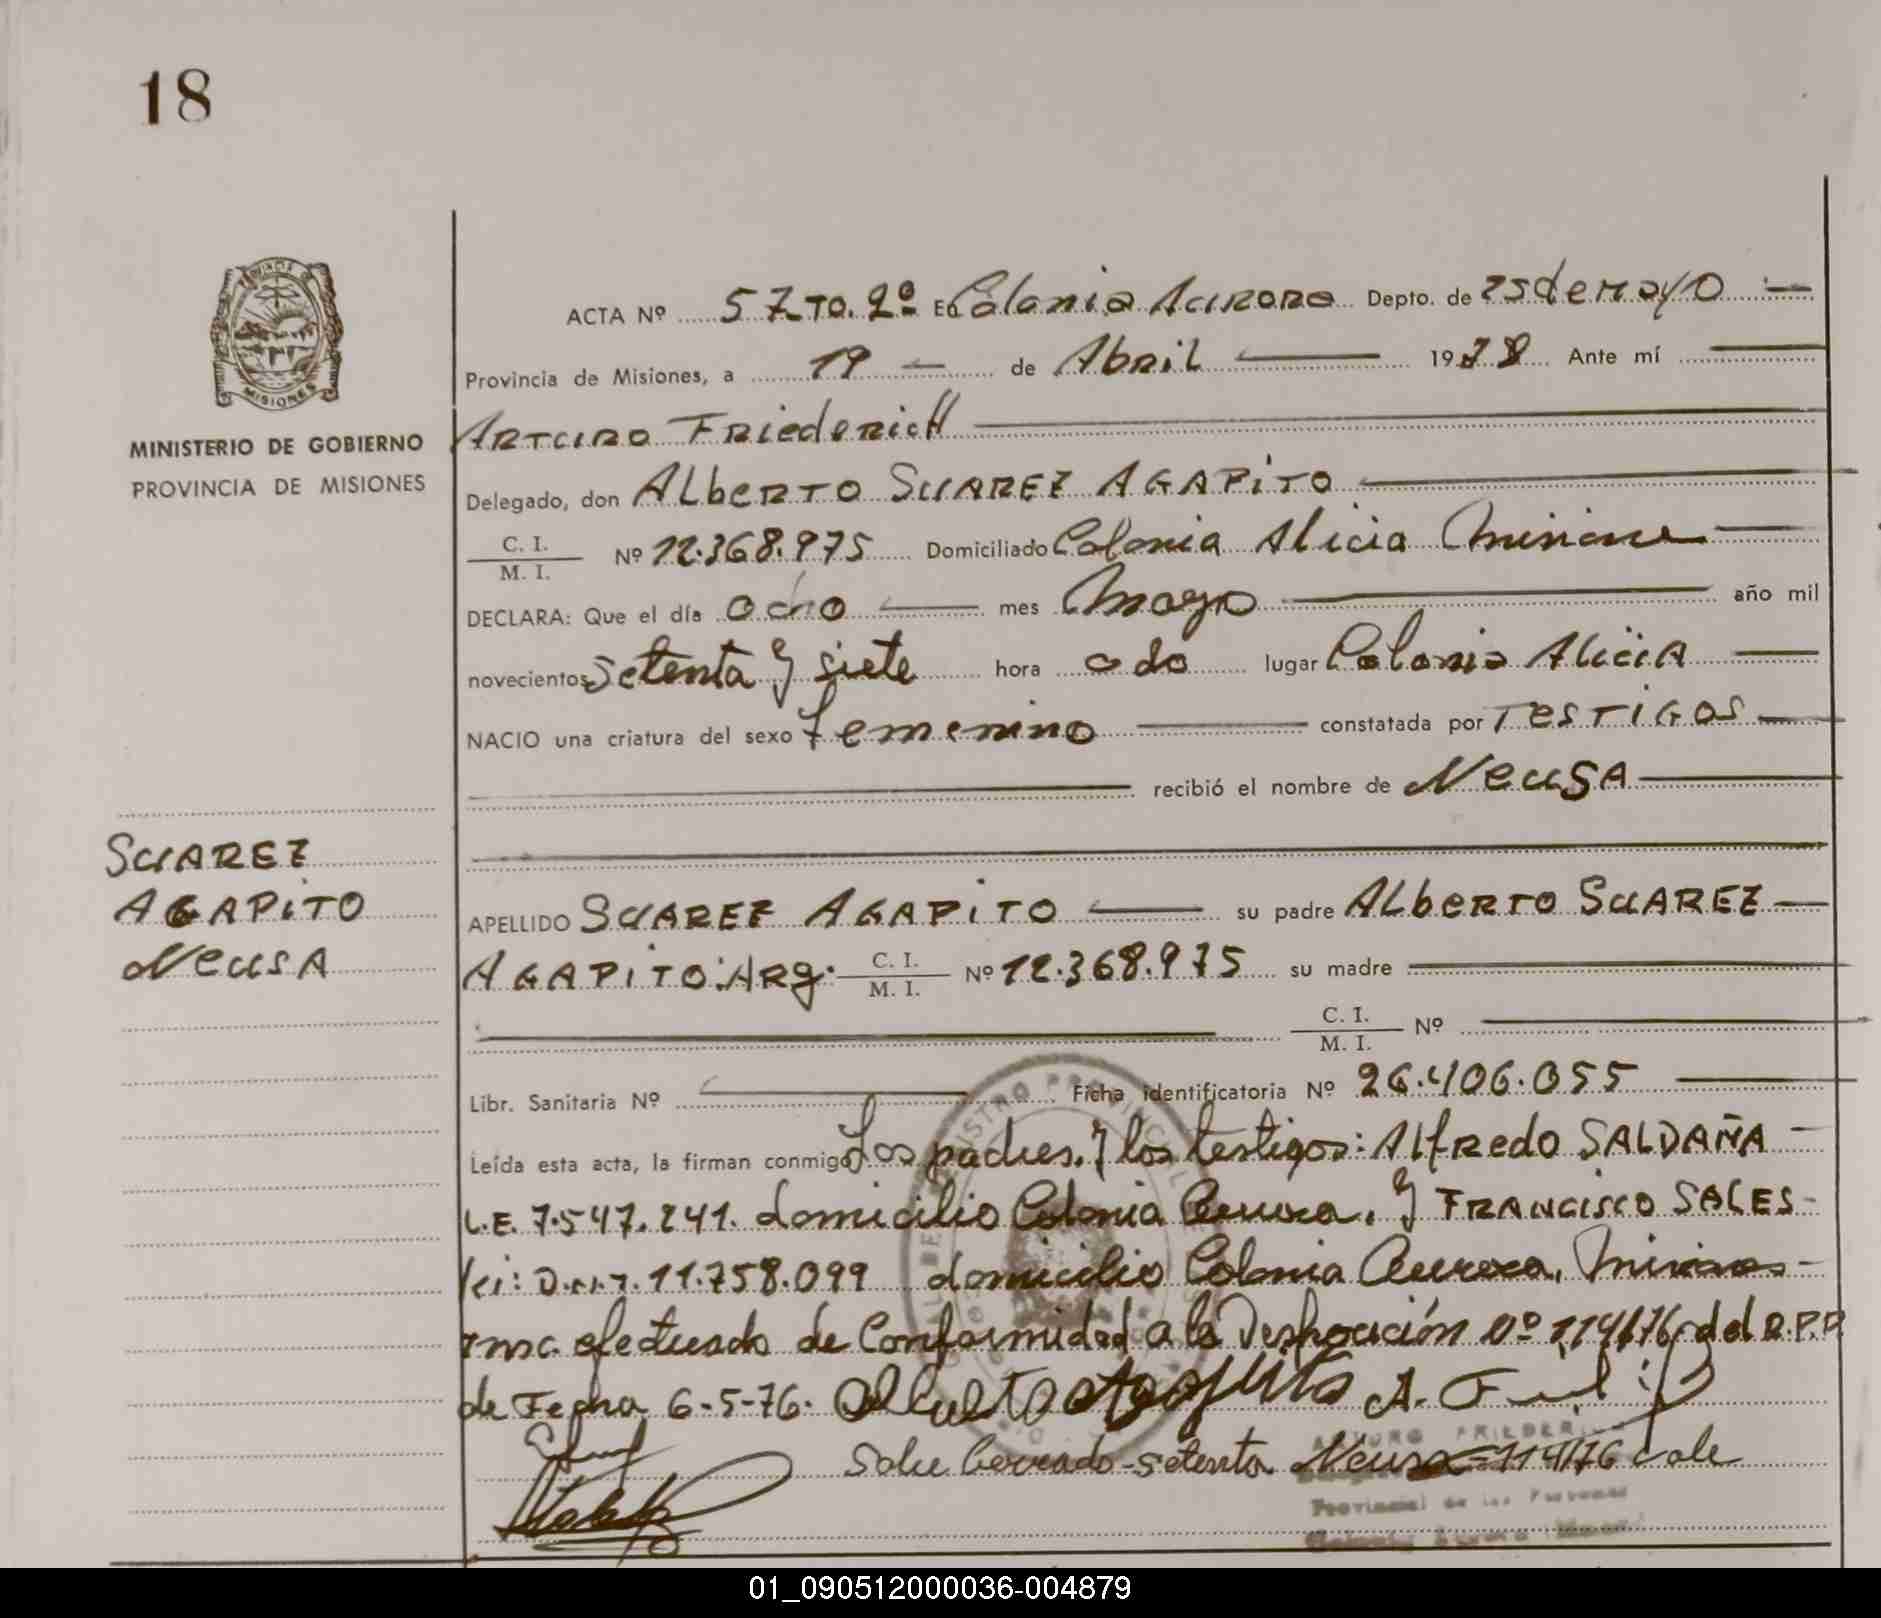 18
MISIONES
MINISTERIO DE GOBIERNO
PROVINCIA DE MISIONES
ACTA Nº 57 TO. 2º En Colonia Aurora Depto. de 25 de mayo
Provincia de Misiones, a 19 de Abril 1978 Ante mí
Arturo Friederich
Delegado, don Alberto SUAREZ AGAPITO
C. I.
M. I. Nº 12.368.975 Domiciliado Colonia Alicia Misiones
DECLARA: Que el día ocho mes Mayo año mil
novecientos setenta y siete hora 0 do lugar Colonia Alicia
NACIO una criatura del sexo femenino constatada por Testigos
recibió el nombre de NeusA
SUAREZ
AGAPITO
NeusA
APELLIDO SUAREZ AGAPITO su padre Alberto SUAREZ
AGAPITO. Arg. C. I.
M. I. Nº 12.368.975 su madre
C. I.
M. I. Nº
Libr. Sanitaria Nº Ficha identificatoria Nº 26.406.055
Leída esta acta, la firman conmigo Los padres. y los testigos: Alfredo SALDAÑA
L.E. 7.547.241. domicilio Colonia Aurora. y FRANCISCO SALES
11.758.099 domicilio Colonia Aurora, Misiones
efectuado de Conformidad a la Disposición nº 114/76 del R.P.P.
de Fecha 6-5-76. Alberto Agapito A.
Sobre borrado-setenta Neusa=114/76 vale
ARTURO FRIEDERICH
Provincial de las Personas
Colonia Aurora
01_090512000036-004879